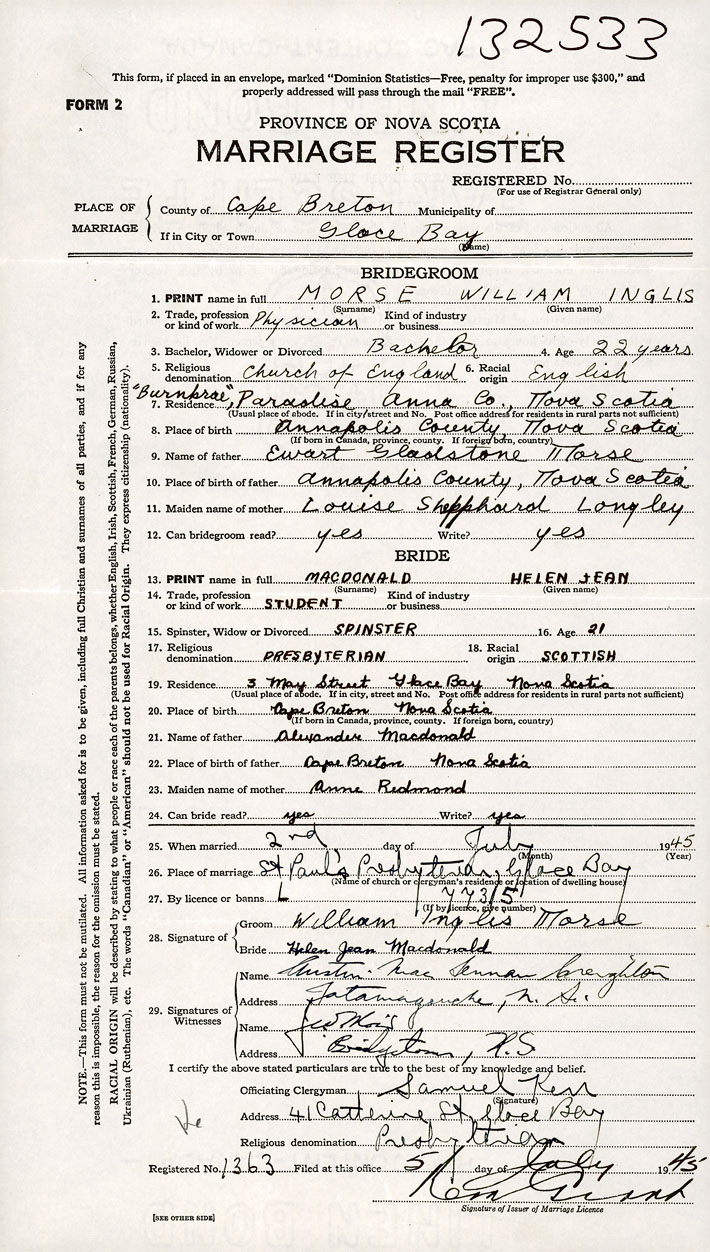 132533
This form, if placed in an envelope, marked "Dominion Statistics—Free, penalty for improper use $300," and
properly addressed will pass through the mail "FREE".
FORM 2
PROVINCE OF NOVA SCOTIA
MARRIAGE REGISTER
REGISTERED No.
(For use of Registrar General only)
PLACE OF MARRIAGE
County of Cape Breton Municipality of
If in City or Town Glace Bay
(Name)
BRIDEGROOM
1. PRINT name in full MORSE WILLIAM INGLIS
(Surname) (Given name)
2. Trade, profession or kind of work Physician Kind of industry or business
3. Bachelor, Widower or Divorced Bachelor 4. Age 22 years
5. Religious denomination Church of England 6. Racial origin English
7. Residence "Burnbrae", Paradise Anna Co., Nova Scotia
(Usual place of abode. If in city/street and No. Post office address for residents in rural parts not sufficient)
8. Place of birth Annapolis County, Nova Scotia
(If born in Canada, province, county. If foreign born, country)
9. Name of father Ewart Gladstone Morse
10. Place of birth of father Annapolis County, Nova Scotia
11. Maiden name of mother Louise Shepphard Longley
12. Can bridegroom read? yes Write? yes
BRIDE
13. PRINT name in full MACDONALD HELEN JEAN
(Surname) (Given name)
14. Trade, profession or kind of work STUDENT Kind of industry or business
15. Spinster, Widow or Divorced SPINSTER 16. Age 21
17. Religious denomination PRESBYTERIAN 18. Racial origin SCOTTISH
19. Residence 3 May Street Glace Bay Nova Scotia
(Usual place of abode. If in city, street and No. Post office address for residents in rural parts not sufficient)
20. Place of birth Cape Breton Nova Scotia
(If born in Canada, province, county. If foreign born, country)
21. Name of father Alexander Macdonald
22. Place of birth of father Cape Breton Nova Scotia
23. Maiden name of mother Anne Redmond
24. Can bride read? yes Write? yes
25. When married 2nd day of July 1945
(Month) (Year)
26. Place of marriage St Paul's Presbyterian, Glace Bay
(Name of church or clergyman's residence or location of dwelling house)
27. By licence or banns L 77315
(If by licence, give number)
28. Signature of
Groom William Inglis Morse
Bride Helen Jean Macdonald
29. Signatures of Witnesses
Name Austin Mac Lennan Creighton
Address Tatamagouche, N. S.
Name
Address Bridgetown, N.S
I certify the above stated particulars are true to the best of my knowledge and belief.
Officiating Clergyman Samuel Kerr
(Signature)
Address 41 Catherine St Glace Bay
Religious denomination Presbyterian
Registered No. 1363 Filed at this office 5 day of July 1945
Signature of Issuer of Marriage Licence
[SEE OTHER SIDE]
NOTE.—This form must not be mutilated. All information asked for is to be given, including full Christian and surnames of all parties, and if for any
reason this is impossible, the reason for the omission must be stated.
RACIAL ORIGIN will be described by stating to what people or race each of the parents belongs, whether English, Irish, Scottish, French, German, Russian,
Ukrainian (Ruthenian), etc. The words "Canadian" or "American" should not be used for Racial Origin. They express citizenship (nationality).